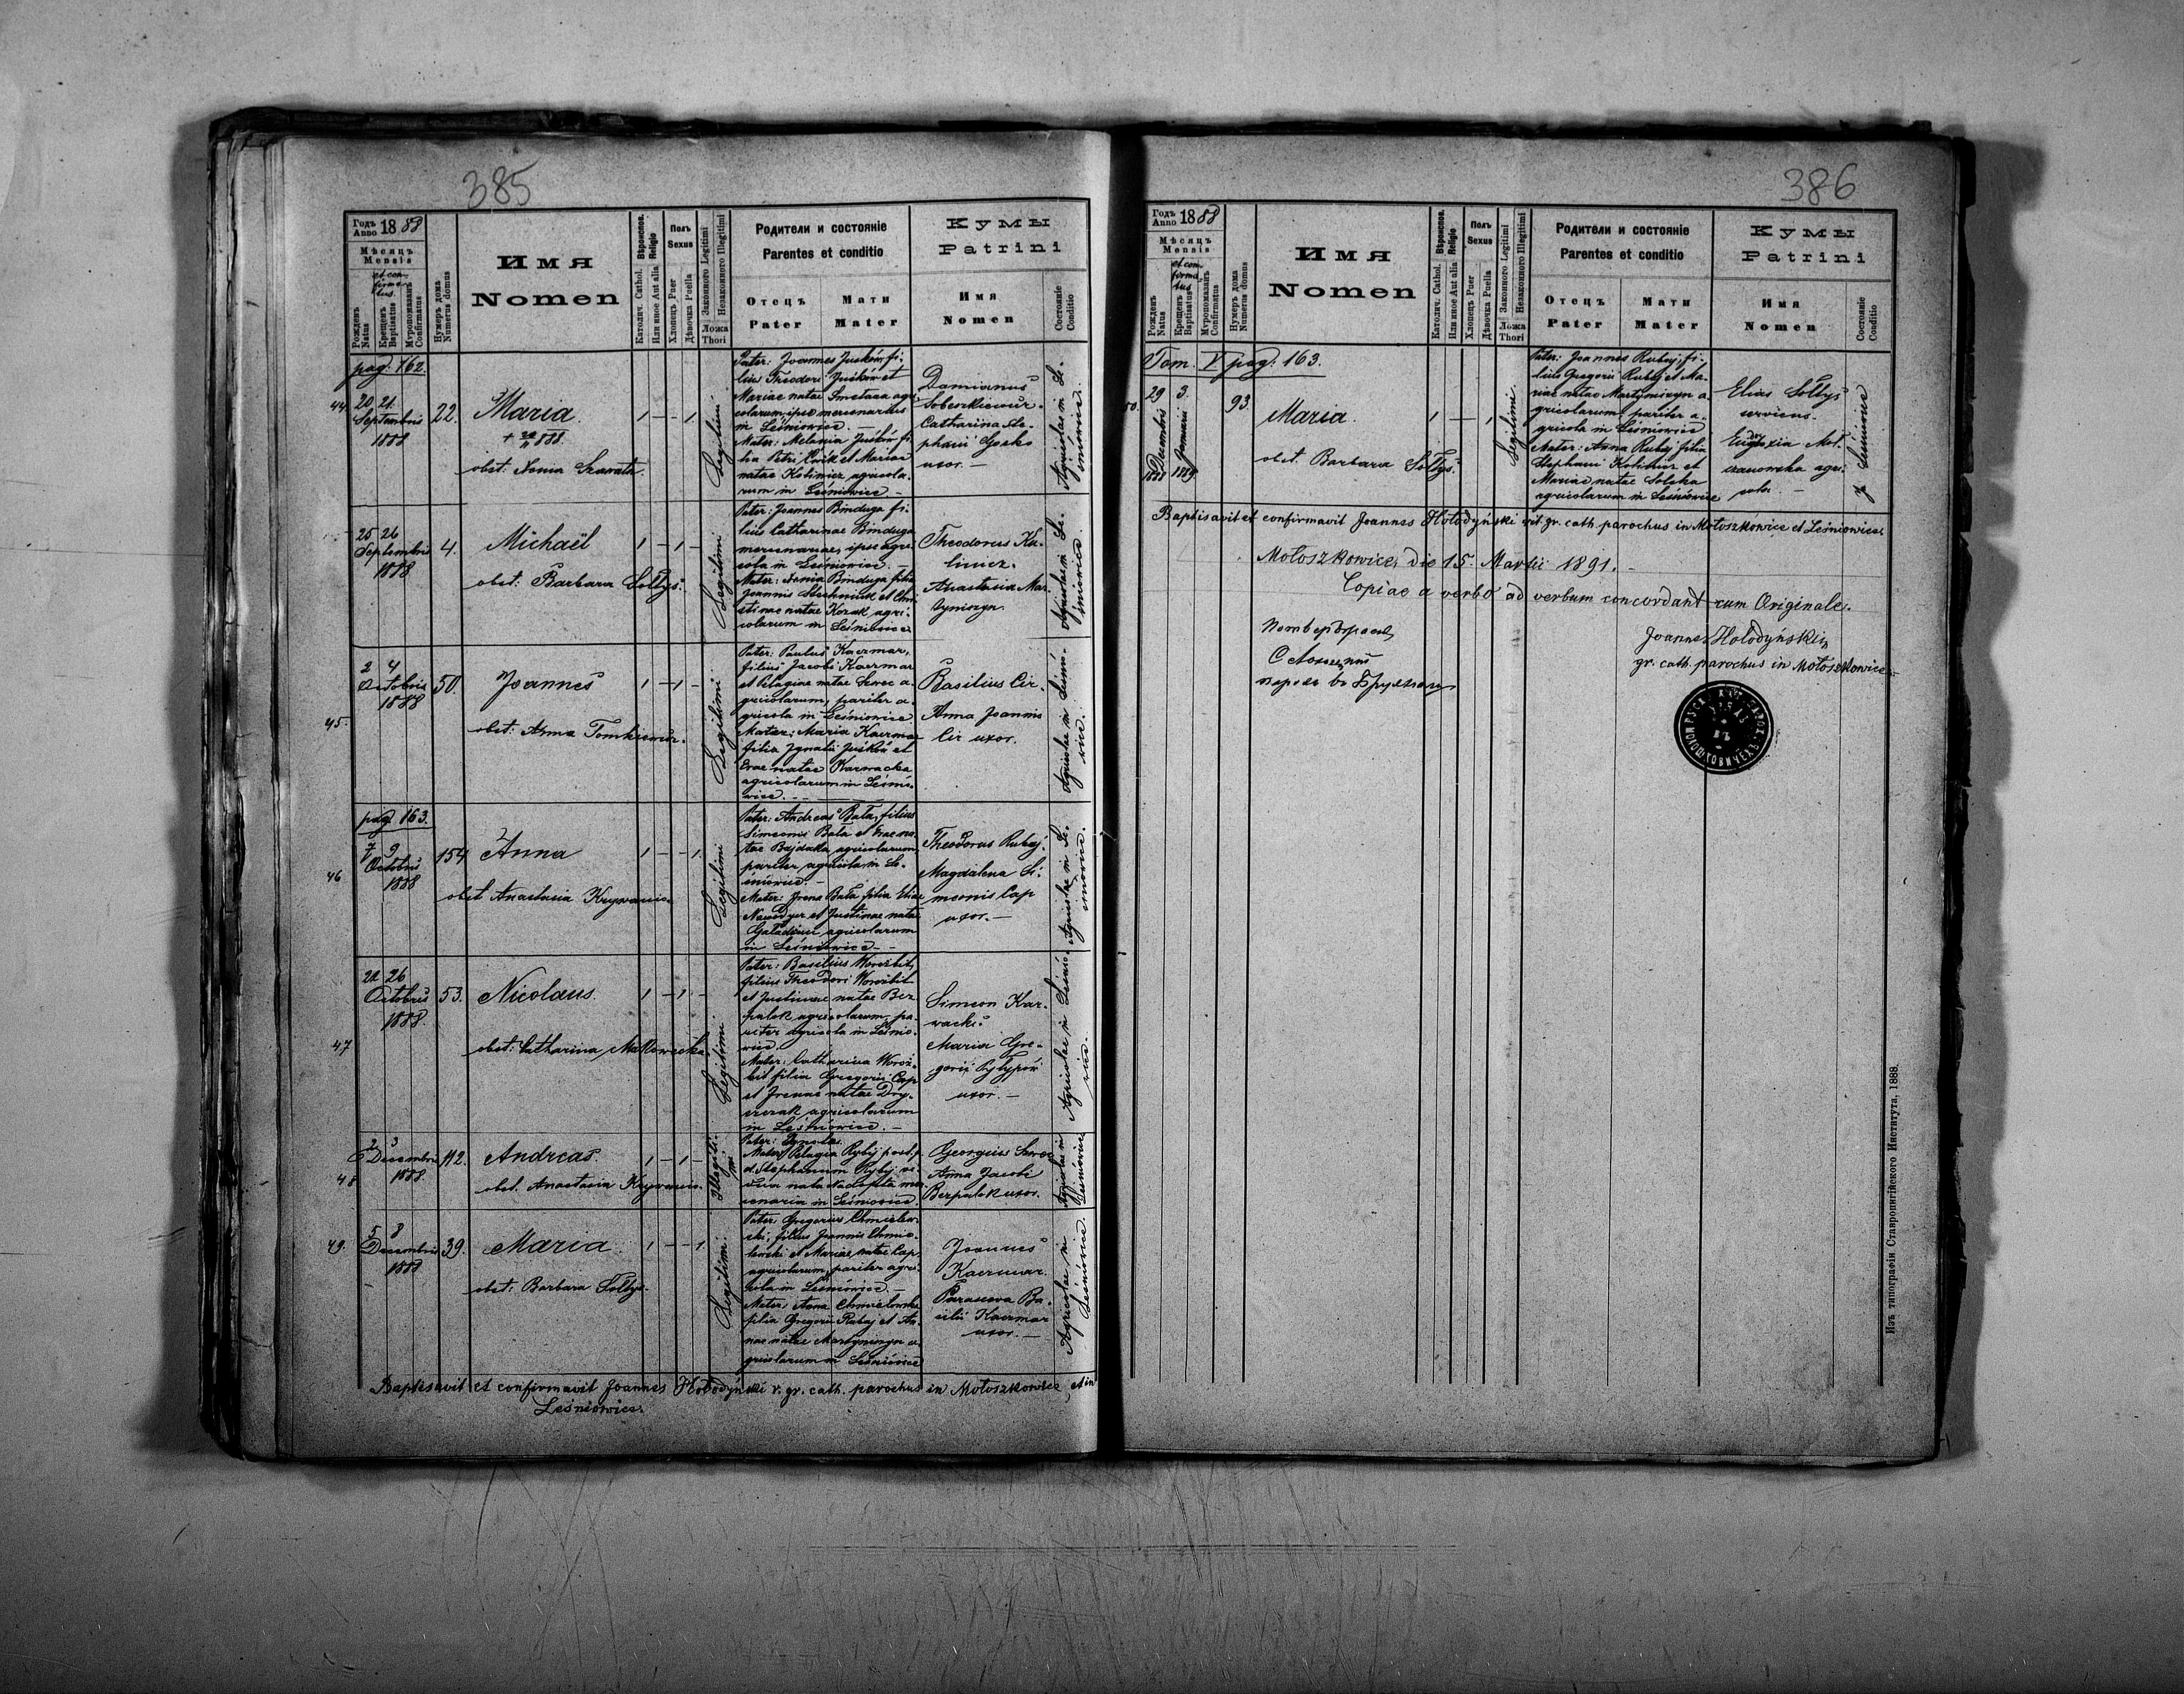 385
Годъ Anno 1888
Мѣсяцъ
Mensis
et con-
firma-
tus.
Рожденъ Natus
Крещенъ Baptisatus
Мѵропомазанъ Confirmatus
Нумеръ дома Numerus domus
Имя
Nomen
Вѣроиспов. Religio
Католич. Cathol.
Или иное Aut alia
Полъ
Sexus
Хлопецъ Puer
Дѣвочка Puella
Законного Legitimi
Незаконного Illegitimi
Ложа
Thori
Родители и состояніе
Parentes et conditio
Отецъ
Pater
Мати
Mater
Кумы
Patrini
Имя
Nomen
Состояніе
Conditio
pag. 162.
44.
20 21
Septembris
1888
22.
Maria
obst: Xenia
Legitimi
Pater: Joannes Juśków fi-
lius Theodori Juśków et
Mariae natae Smetana agri-
colarum, ipse mercenarius
in Leśniowice. —
Mater: Melania Juśków fi-
lia Petri et Mariae
natae Kolimicz agricola-
rum in Leśniowice —
Damianus
Catharina Ste-
phani
uxor. —
Agricolae in Le-
śniowice.
25 26
Septembris
1888
4.
Michaël
obst: Barbara Sołtys.
Legitimi
Pater: Joannes Binduga fi-
lius Catharinae Binduga
mercenariae, ipse agri-
cola in Leśniowice. —
Mater: Xenia Binduga filia
Joannis et Chri-
stinae natae Kozak agri-
colarum in Leśniowice
Theodorus Ku-
limicz.
Anastasia Mar-
tyniszyn
Agricolae in Le-
śniowice.
45.
2 4
Octobris
1888
50.
Joannes
obst: Anna Tomkiewicz.
Legitimi
Pater: Paulus Kaczmar,
filius Jacobi Kaczmar
et Pelagiae natae Szwec a-
gricolarum, pariter a-
gricola in Leśniowice
Mater: Maria Kaczmar
filia Ignatii Juśków et
Evae natae Karwacka
agricolarum in Leśnio-
wice. —
Basilius Cir.
Anna Joannis
Cir uxor.
Agricolae in Leśnio-
wice.
pag. 163.
46
7 9
Octobris
1888
154
Anna
obst Anastasia
Legitimi
Pater: Andreas Bała, filius
Simeonis Bała et Evae na-
tae Bajdała, agricolarum
pariter agricola in Le-
śniowice. —
Mater: Irena Bała filia Eliae
et Justinae natae
agricolarum
in Leśniowice —
Theodorus Rubaj.
Magdalena Si-
meonis Cap
uxor. —
Agricolae in Le-
śniowice.
47
22 26
Octobris
1888.
53.
Nicolaus.
obst: Catharina Makowiecka
Legitimi
Pater: Basilius Worobit,
filius Theodori Worobit
et Justinae natae Bez-
palok agricolarum, pa-
riter agricola in Leśnio-
wice.
Mater: Catharina Woro-
bit filia Gregorii Cap
et Irenae natae
agricolarum
in Leśniowice. —
Simeon Kar-
wacki.
Maria Gre-
gorii Pyłypów
uxor. —
Agricolae in Leśnio-
wice.
48
2 3
Decembris
1888
112.
Andreas.
obst. Anastasia
Illegiti-
mi
Pater: Ignotus.
Mater: Pelagia Rybij post
d. Stephanum Rybij vi-
dua nata mer-
cenaria in Leśniowice
Georgius Szwec
Anna Jacobi
Bezpalok uxor.
Agricolae in
Leśniowice
49.
5 8
Decembris
1888
39.
Maria
obst: Barbara Sołtys.
Legitimi.
Pater: Gregorius Chmielew-
ski, filius Joannis Chmie-
lewski et Mariae, natae Cap
agricolarum, pariter agri-
cola in Leśniowice. —
Mater: Anna Chmielewska
filia Gregorii Rubaj et An-
nae natae Martyniszyn a-
gricolarum in Leśniowice
Joannes
Kaczmar.
Parasceva Ba-
silii Kaczmar
uxor. —
Agricolae in
Leśniowice.
Baptisavit et confirmavit Joannes Hołodyński r. gr. cath. parochus in Mołoszkowice et in
Leśniowice.
386
Годъ Anno 1888
Мѣсяцъ
Mensis
et con-
firma-
tus
Рожденъ Natus
Крещенъ Baptisatus
Мѵропомазанъ Confirmatus
Нумеръ дома Numerus domus
Имя
Nomen
Вѣроиспов. Religio
Католич. Cathol.
Или иное Aut alia
Полъ
Sexus
Хлопецъ Puer
Дѣвочка Puella
Законного Legitimi
Незаконного Illegitimi
Ложа
Thori
Родители и состояніе
Parentes et conditio
Отецъ
Pater
Мати
Mater
Кумы
Patrini
Имя
Nomen
Состояніе
Conditio
Tom. V pag. 163.
50.
29 Decembris 1888
3. Januarii 1889
93.
Maria.
obst. Barbara Sołtys.
Legitimi.
Pater: Joannes Rubaj, fi-
lius Gregorii Rubaj et Ma-
riae natae Martyniszyn a-
gricolarum, pariter a-
gricola in Leśniowice
Mater: Anna Rubaj filia
Stephani Kolimicz et
Mariae natae Solska
agricolarum in Leśniowice
Elias Sołtys
servicus.
Eudoxia Mol-
czanowska agri-
cola. —
z Leśniowice
Baptisavit et confirmavit Joannes Hołodyński rit. gr. cath. parochus in Mołoszkowice et Leśniowice.
Mołoszkowice, die 15. Martii 1891. —
Copiae a verbo ad verbum concordant cum Originale.
Joannes Hołodyński
gr. cath. parochus in Mołoszkowice.
Изъ типографіи Ставропигійского Института, 1888.